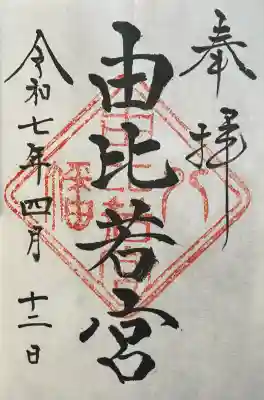 奉拝
由比若宮
令和七年四月十二日